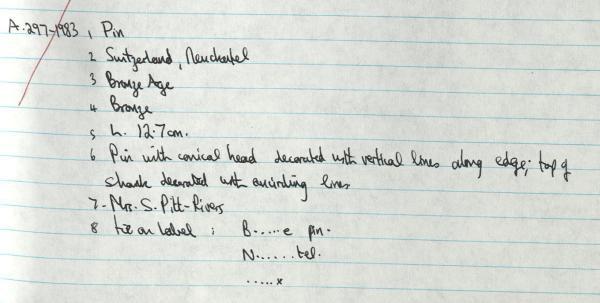 A.297-1983 1 Pin
2 Switzerland, Neuchatel
3 Bronze Age
4 Bronze
5 L. 12.7cm.
6 Pin with conical head decorated with vertical lines along edge; top of
shank decorated with encircling lines
7. Mrs. S. Pitt-Rivers
8 tie on label : B.....e pin.
N......tel.
.....x